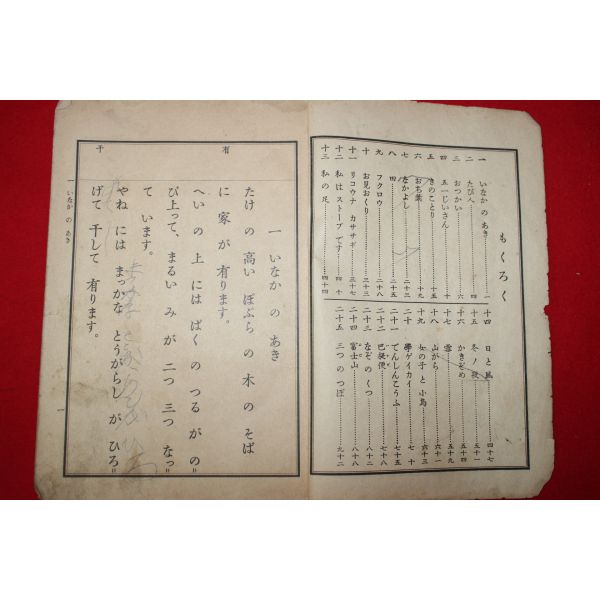 もくろく
一 いなか の あき……一
二 たび人……四
三 おつかい……六
四 五一じいさん……十
五 きのことり……十五
六 おち葉……十九
七 なかよし……二十三
八 四……二十五
九 フクロウ……
十 お見おくり……三十三
十一 リコウナ カササギ……三十七
十二 私はストーブです……四十
十三 私の足……四十四
十四 日と風……四十七
十五 冬ノ夜……五十一
十六 かきぞめ……五十四
十七 雪……五十九
十八 山がら……六十三
十九 女の子 と 小鳥
二十 學ゲイカイ……七十
二十一 でんしんごっこ……七十五
二十二 巴提便……七十八
二十三 なぞ の くつ……八十二
二十四 富士山……八十八
二十五 三つ の つぼ……九十二
有
干
一 いなか の あき
たけ の 高い ぽぷら の 木 の そば
に 家 が 有ります。
へい の 上 には ぱく の つる が の
び上って、まるい み が 二つ 三つ なっ
て います。
やね には まっかな とうがらし が ひろ
げて 干して 有ります。
一 いなか の あき
一